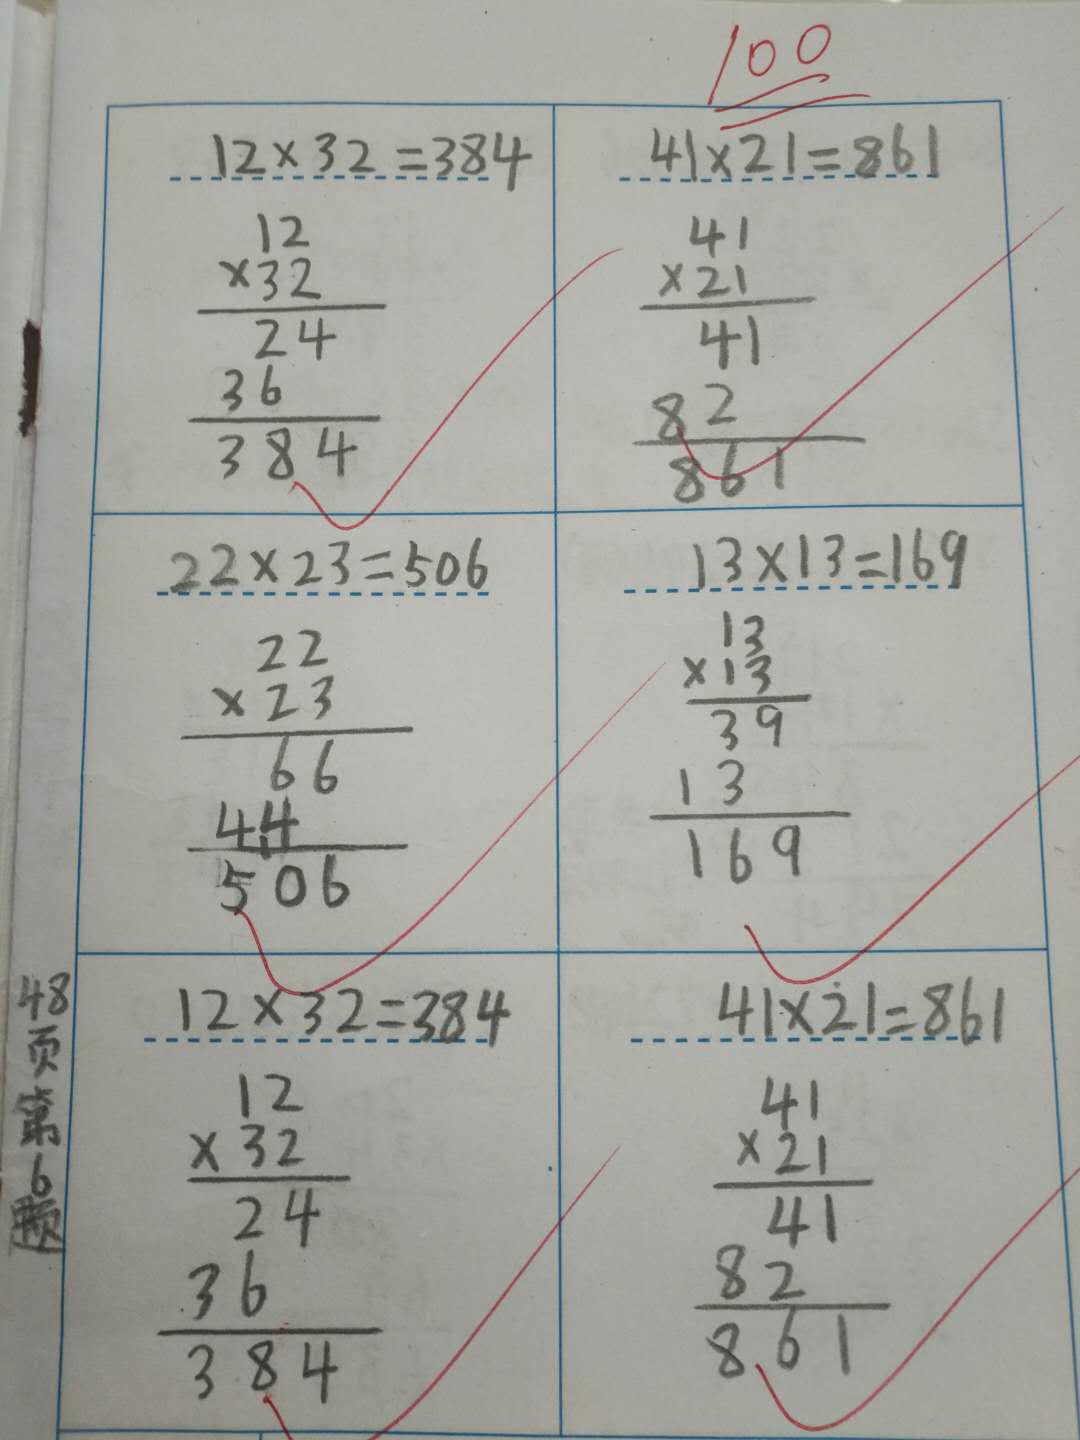 100
12×32=384
12
×32
24
36
384
41×21=861
41
×21
41
82
861
22×23=506
22
×23
66
44
1
506
13×13=169
13
×13
39
13
169
48页第6题
12×32=384
12
×32
24
36
384
41×21=861
41
×21
41
82
861